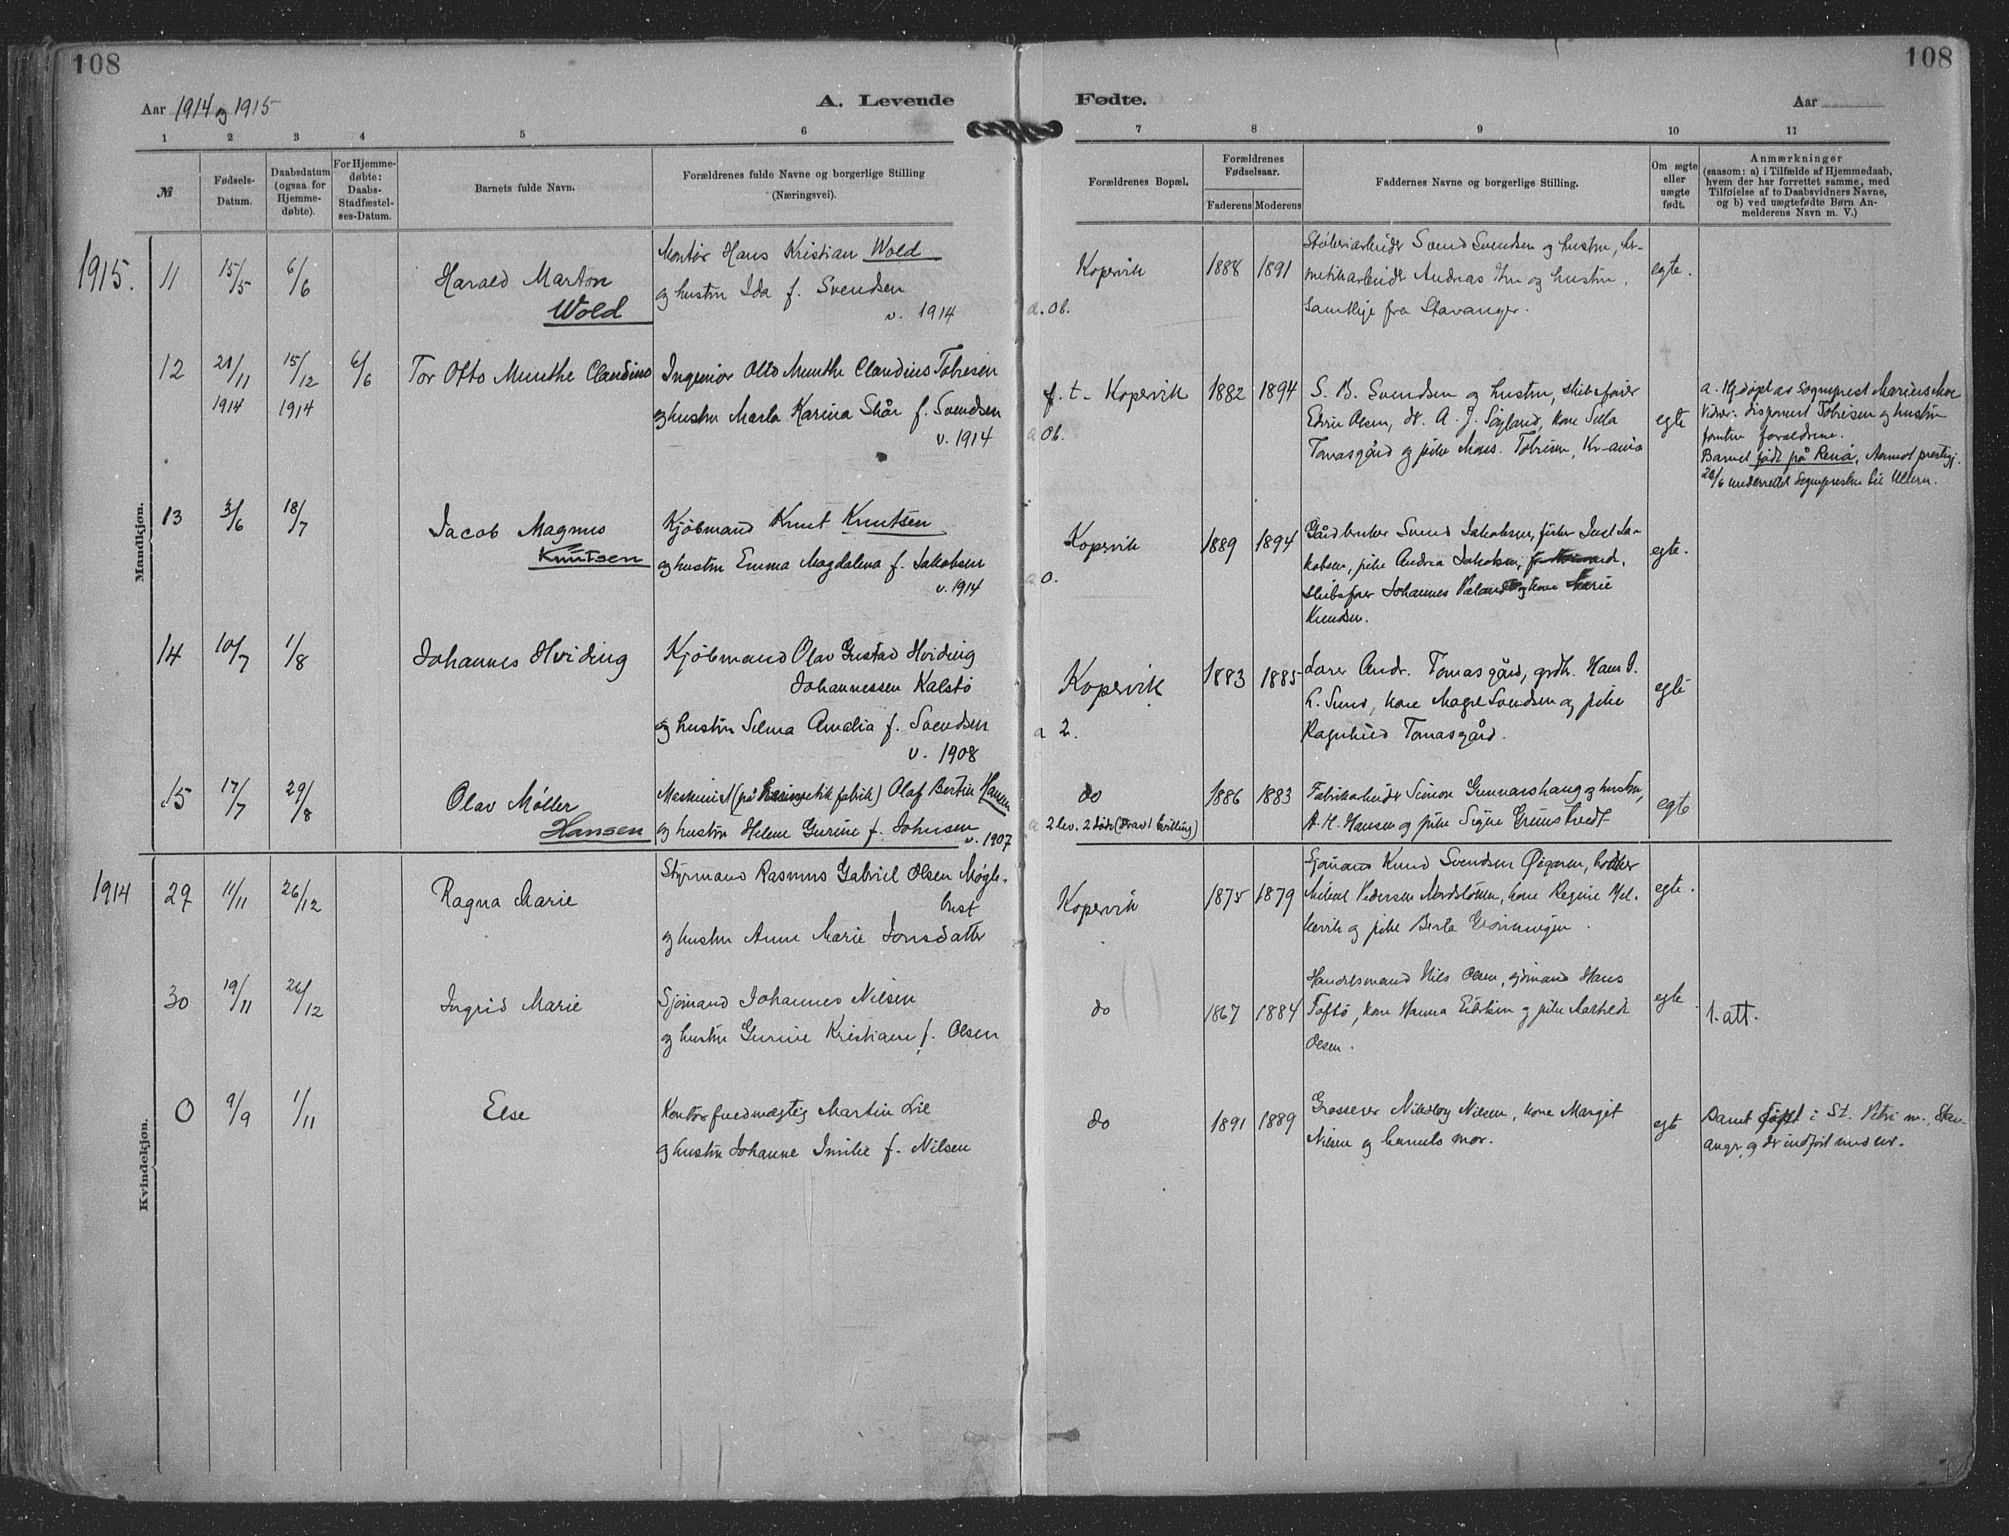 108
108
Aar 1914 og 1915
A. Levende
Fødte.
Aar
1 2 3 4 5 6 7 8 9 10 11
№
Fødsels-Datum.
Daabsdatum (ogsaa for Hjemme-døbte).
For Hjemme-døbte: Daabs-Stadfæstel-ses-Datum.
Barnets fulde Navn.
Forældrenes fulde Navne og borgerlige Stilling
(Næringsvei).
Forældrenes Bopæl.
Forældrenes Fødselsaar.
Faderens Moderens
Faddernes Navne og borgerlige Stilling.
Om ægte eller uægte født.
Anmærkninger
(saasom: a) i Tilfælde af Hjemmedaab,
hvem der har forrettet samme, med
Tilføielse af to Daabsvidners Navne,
og b) ved uægtefødte Børn An-
melderens Navn m. V.)
Mandkjøn.
1915.
11 15/5 6/6
Harald Marton
Wold
Montør Hans Kristian Wold
og hustru Ida f. Svendsen
v. 1914
Kopervik
a. Ob.
1888 1891
Svend Svendsen og hustru, her-
metikarbeider Andreas og hustru,
samtlige fra Stavanger.
egte.
12 21/11 1914 15/12 1914 6/6
Tor Otto Munthe Claudius
Ingeniør Otto Munthe Claudius Tobiesen
og hustru Marta Karina Skår f. Svendsen
v. 1914
f. t. Kopervik
a Ob.
1882 1894
S. B. Svendsen og hustru, skibsfører
Edvin Olsen, A. J. kone Silla
Tomasgård og pike Mons. Tobiesen, Kr-ania
egte
a. Hj.døpt av Sogneprest
Vidner: disponent Tobiesen og hustru
foruten forældrene.
Barnet født på Rena, Aamot prestegj.
26/6 underrettet Sognepresten til Ullern.
13 3/6 18/7
Jacob Magnus
Knutsen
Kjøbmand Knut Knutsen
og hustru Emma Magdalena f. Jakobsen
v. 1914
Kopervik
a O.
1889 1894
Gårdbruker Svend Jakobsen, fisker Just Ja-
kobsen, pike Andrea Jakobsen,
skibsfører Johannes Væland og kone Marie
Knudsen.
egte.
14 10/7 1/8
Johannes Hviding
Kjøbmand Olav Gustav Hviding
Johannessen Kalstø
og hustru Selma Amalia f. Svendsen
v. 1908
Kopervik
a 2.
1883 1885
Lærer Andr. Tomasgård, grdbr. Hans J.
L. Sund, kone Magle Svendsen og pike
Ragnhild Tomasgård.
egte
15 17/7 29/8
Olav Møller
Hansen
Maskinist (på hermetikfabrik) Olaf Bertin Hansen
og hustru Helene Gurine f. Johnsen
v. 1907
do
a 2 lev. 2 døde (hvorav 1 tvilling)
1886 1883
Fabrikarbeider Simon Gunnarshaug og hustru,
A. H. Hansen og pike Signe Grimstvedt
egte
Kvindekjøn.
1914
29 11/11 26/12
Ragna Marie
Styrmand Rasmus Gabriel Olsen Møgle-
bust
og hustru Anne Marie Jonsdatter
Kopervik
1875 1879
Sjømand Knud Svendsen Øygaren,
Mikael Pedersen kone Regine Mel-
kevik og pike Berta Grønningen.
egte.
30 19/11 26/12
Ingrid Marie
Sjømand Johannes Nilsen
og hustru Gurine Kristiane f. Olsen
do
1867 1884
Handelsmand Nils Olsen, sjømand Hans
Toftø, kone Hanna Eriksen og pike
Olsen.
egte.
1. att.
0 9/9 1/11
Else
Kontorfuldmægtig Martin Lie
og hustru Johanne Emilie f. Nilsen
do
1891 1889
Grosserer Nikolay Nilsen, kone Margit
Nielsen og barnets mor.
egte
Barnet døpt i St. Petri m., Stav-
anger, og der indført under nr.